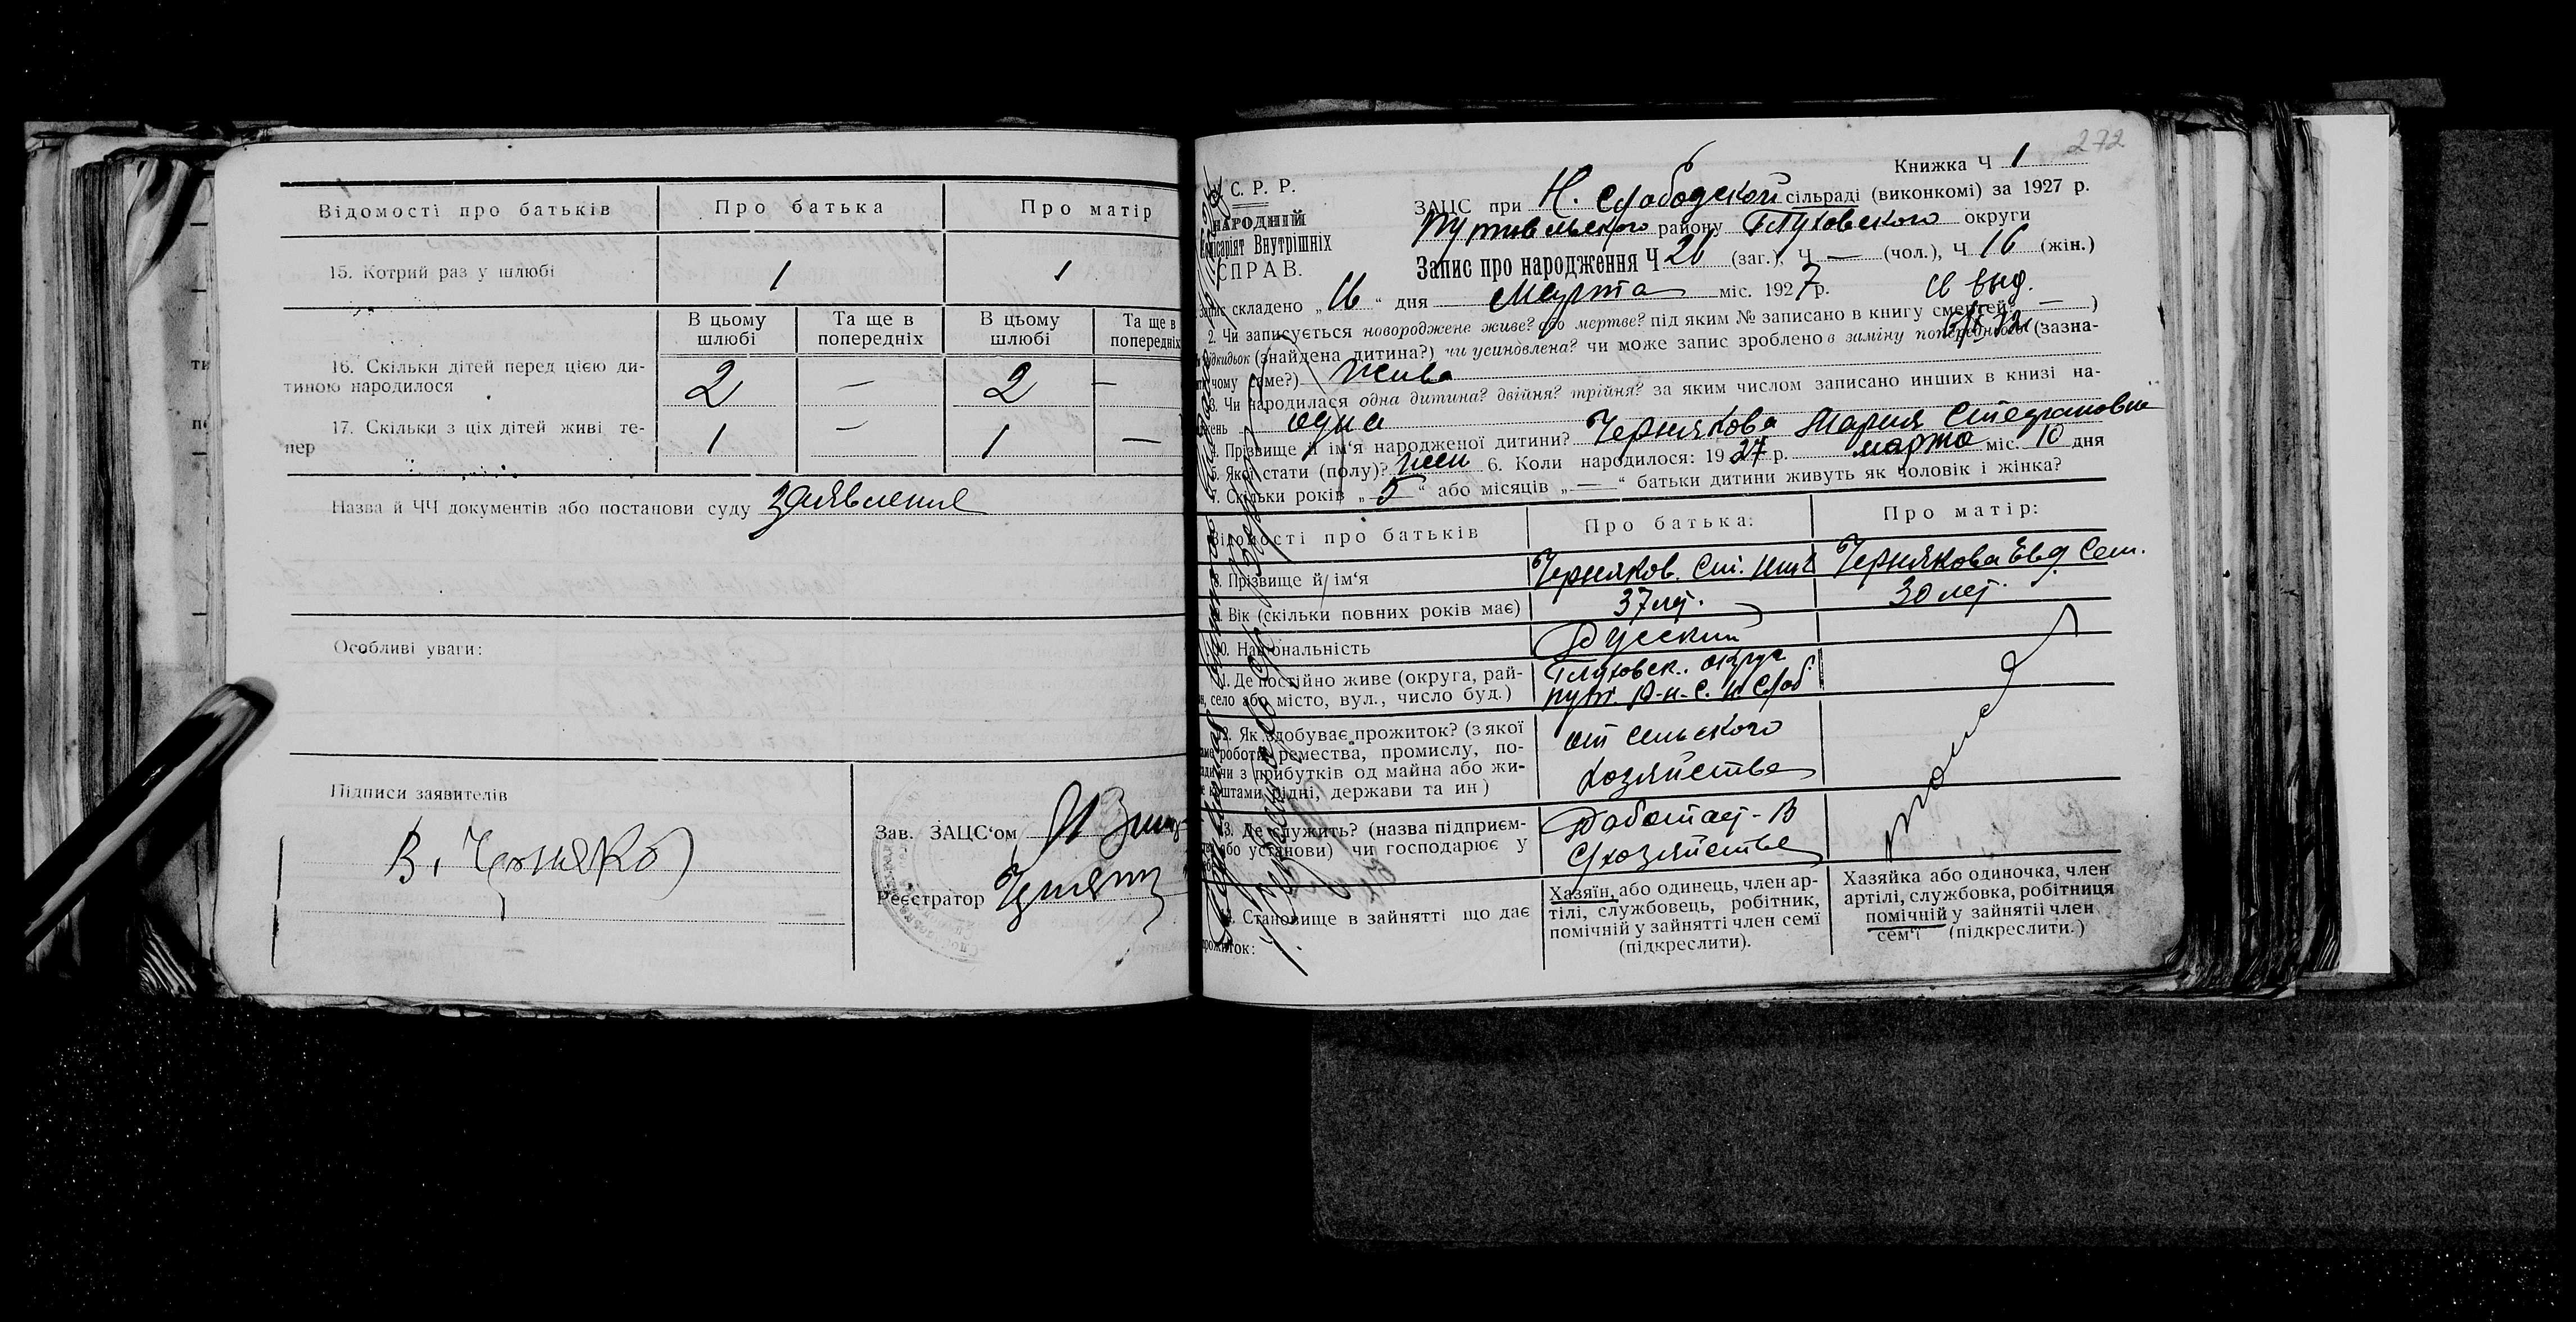 Відомості про батьків Про батька Про матір
15. Котрий раз у шлюбі 1 1
В цьому шлюбі Та ще в попередніх В цьому шлюбі Та ще в попередніх
16. Скільки дітей перед цією ди-
тиною народилося 2 — 2 —
17. Скільки з ціх дітей живі те-
пер 1 — 1 —
Назва й ЧЧ документів або постанови суду заявление
Особливі уваги:
Підписи заявителів
В. Черняков
Зав. ЗАЦС‘ом
Реєстратор
272
Книжка Ч 1
С. Р. Р.
НАРОДНІЙ
Комісаріят Внутрішніх
СПРАВ.
ЗАЦС при Н. Слободской сільраді (виконкомі) за 1927 р.
Путивльского району Глуховского округи
Запис про народження Ч 26 (заг.), Ч — (чол.), Ч 16 (жін.)
Запис складено „16“ дня Марта міс. 1927 р.
св выд.
2. Чи записується новороджене живе? або мертве? під яким № записано в книгу смертей? — )
підкидьок (знайдена дитина?) чи усиновлена? чи може запис зроблено в заміну попереднього? (зазна-
чому саме?) жива
3. Чи народилася одна дитина? двійня? трійня? за яким числом записано инших в книзі на-
джень одна
4. Прізвище й ім‘я народженої дитини? Чернякова Мария Стефановна
5. Якої стати (полу)? жен 6. Коли народилося: 1927 р. марта міс. 10 дня
7. Скільки років „5“ або місяців „—“ батьки дитини живуть як чоловік і жінка?
Відомості про батьків Про батька: Про матір:
8. Прізвище й ім‘я Черняков. Ст. Чернякова Евд. Сем.
9. Вік (скільки повних років має) 37 лет. 30 лет.
10. Національність Русский
11. Де постійно живе (округа, рай- Глуховск. округ
он, село або місто, вул., число буд.) Пут. Р-н-с. Н Слоб.
12. Як здобуває прожиток? (з якої от сельского
саме роботи, ремества, промислу, по-
сади чи з прибутків од майна або жи- хозяйства
ве коштами рідні, держави та ин )
13. Де служить? (назва підприєм- Работает - в
ства або установи) чи господарює у С/хозяйстве
14. Становище в зайнятті що дає
прожиток:
Хазяїн, або одинець, член ар-
тілі, службовець, робітник,
помічний у зайнятті член семї
(підкреслити).
Хазяйка або одиночка, член
артілі, службовка, робітниця
помічній у зайнятії член
сем‘ї (підкреслити.)